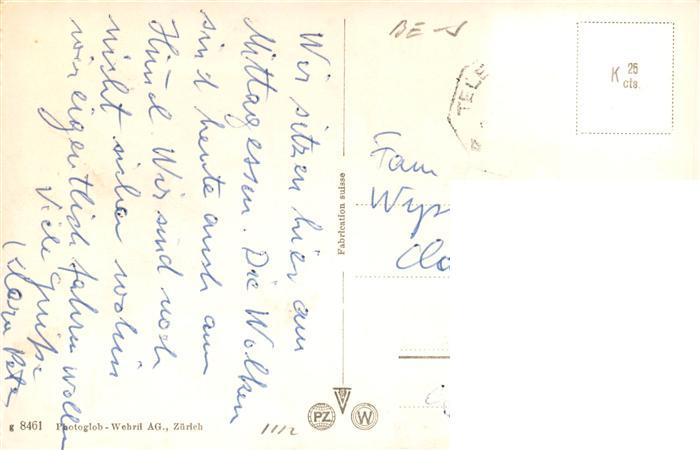 Wir sitzen hier am
Mittagessen. Die Wolken
sind heute auch am
Hüml. Wir sind noch
nicht sicher wohin
wir eigentlich fahren wollen
Viele Grüsse
Clara Peter
BE
TELE
K 25
cts.
Fam
Fabrication suisse
PZ
W
g 8461 Photoglob-Wehrli AG., Zürich
1112